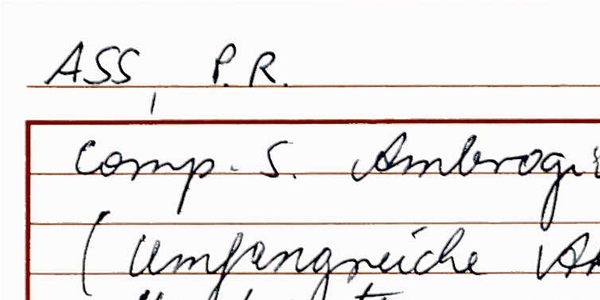 ASS, P.R.
Comp. S. Ambrogi
(Umfangreiche